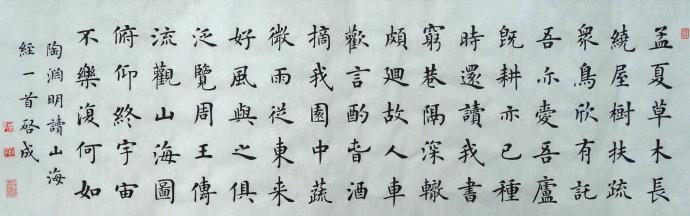 孟夏草木長
繞屋樹扶疏
衆鳥欣有託
吾亦愛吾廬
既耕亦已種
時還讀我書
窮巷隔深轍
頗迴故人車
歡言酌春酒
摘我園中蔬
微雨從東来
好風與之俱
泛覽周王傳
流觀山海圖
俯仰終宇宙
不樂復何如
陶淵明讀山海
經一首啓成